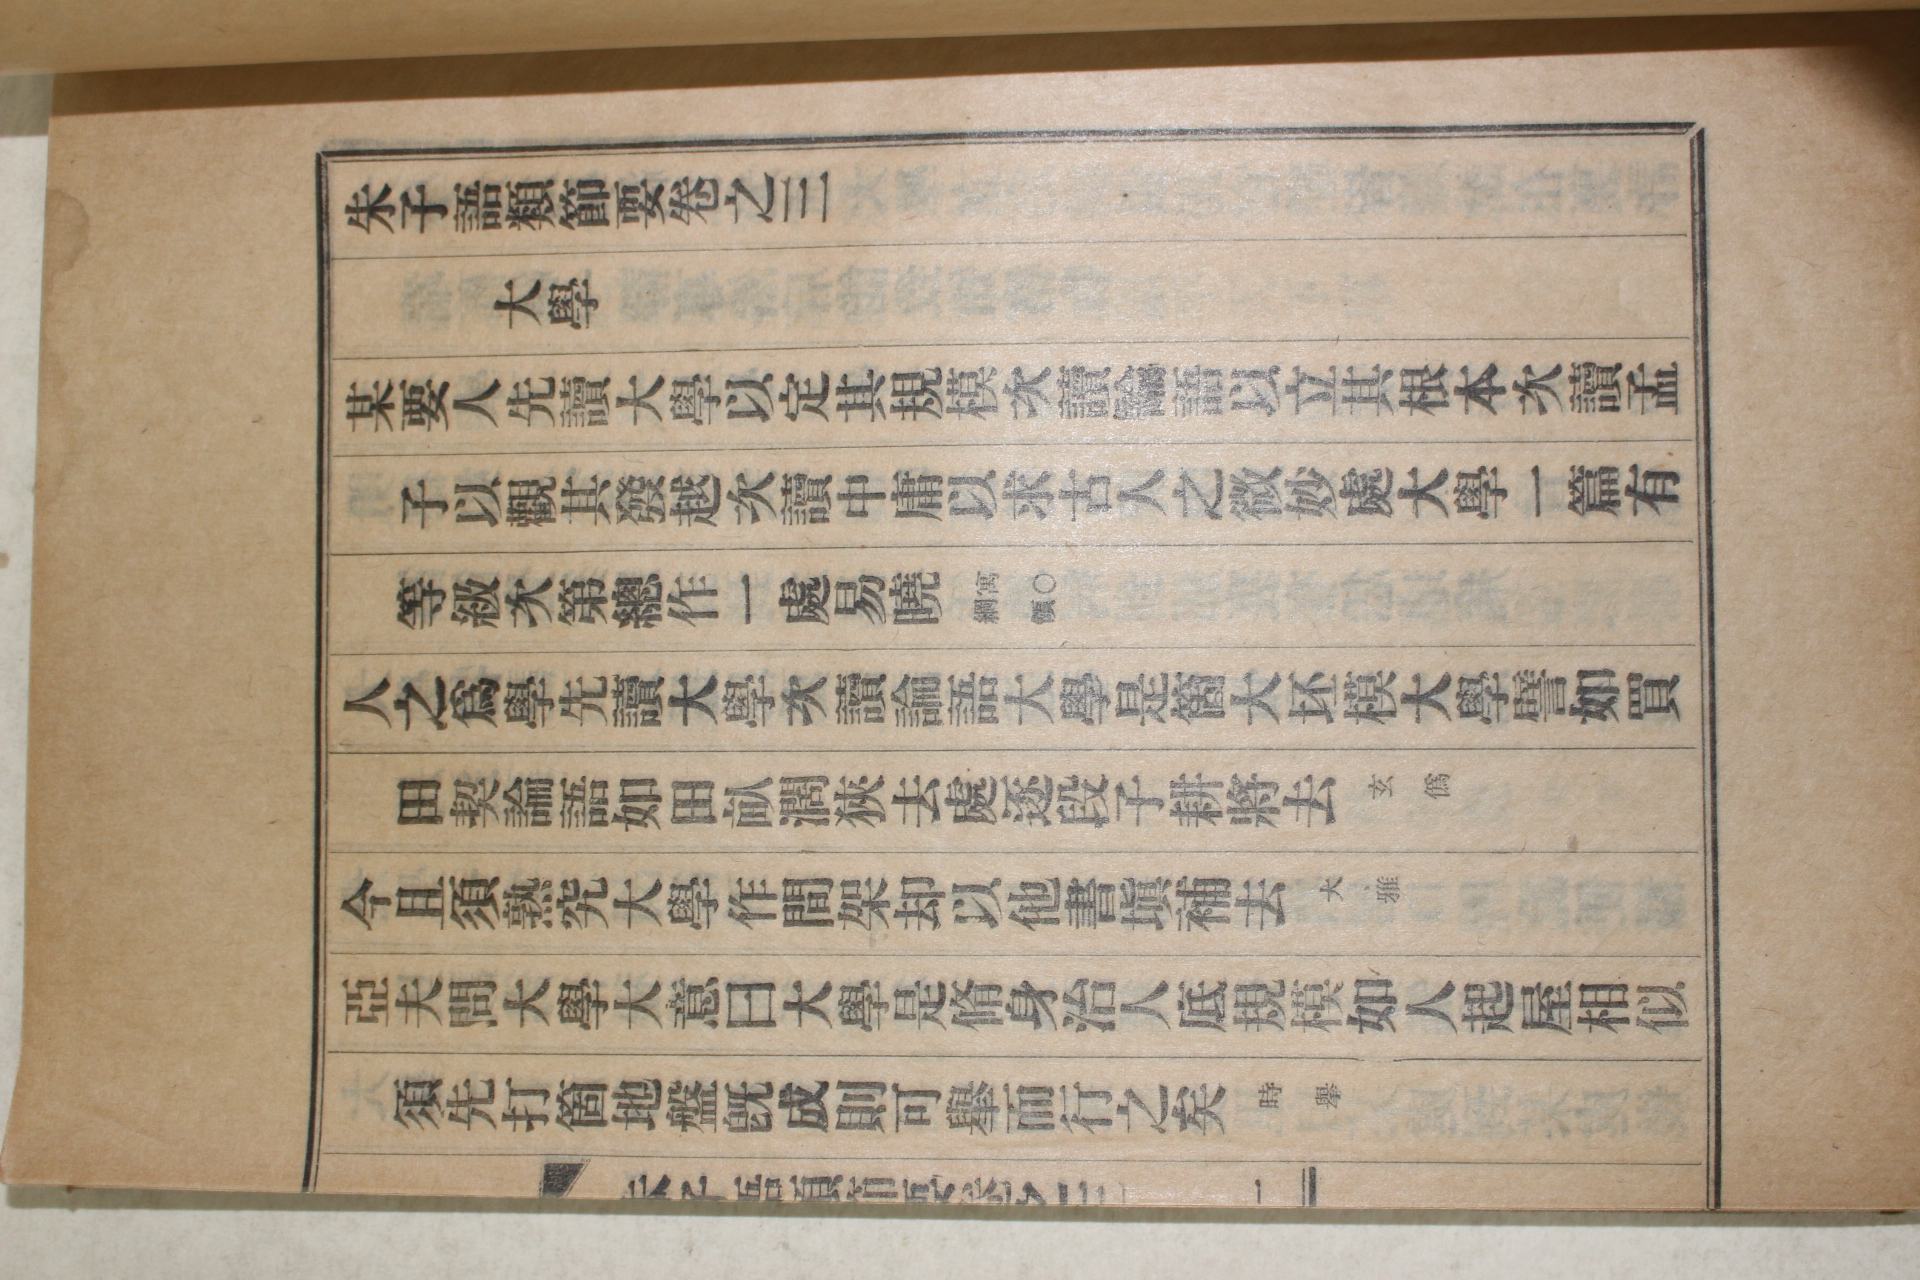 朱子語類節要卷之三
大學
某要人先讀大學以定其規模次讀論語以立其根本次讀孟
子以觀其發越次讀中庸以求古人之微妙處大學一篇有
等級次第總作一處易曉 㝢○綱領
人之爲學先讀大學次讀論語大學是箇大坯模大學譬如買
田契論語如田畝濶狹去處逐段子耕將去 玄僞
今且須熟究大學作間架却以他書塡補去 大雅
亞夫問大學大意曰大學是脩身治人底規模如人起屋相似
須先打箇地盤旣成則可擧而行之矣 時擧
朱子語類節要卷之三 一